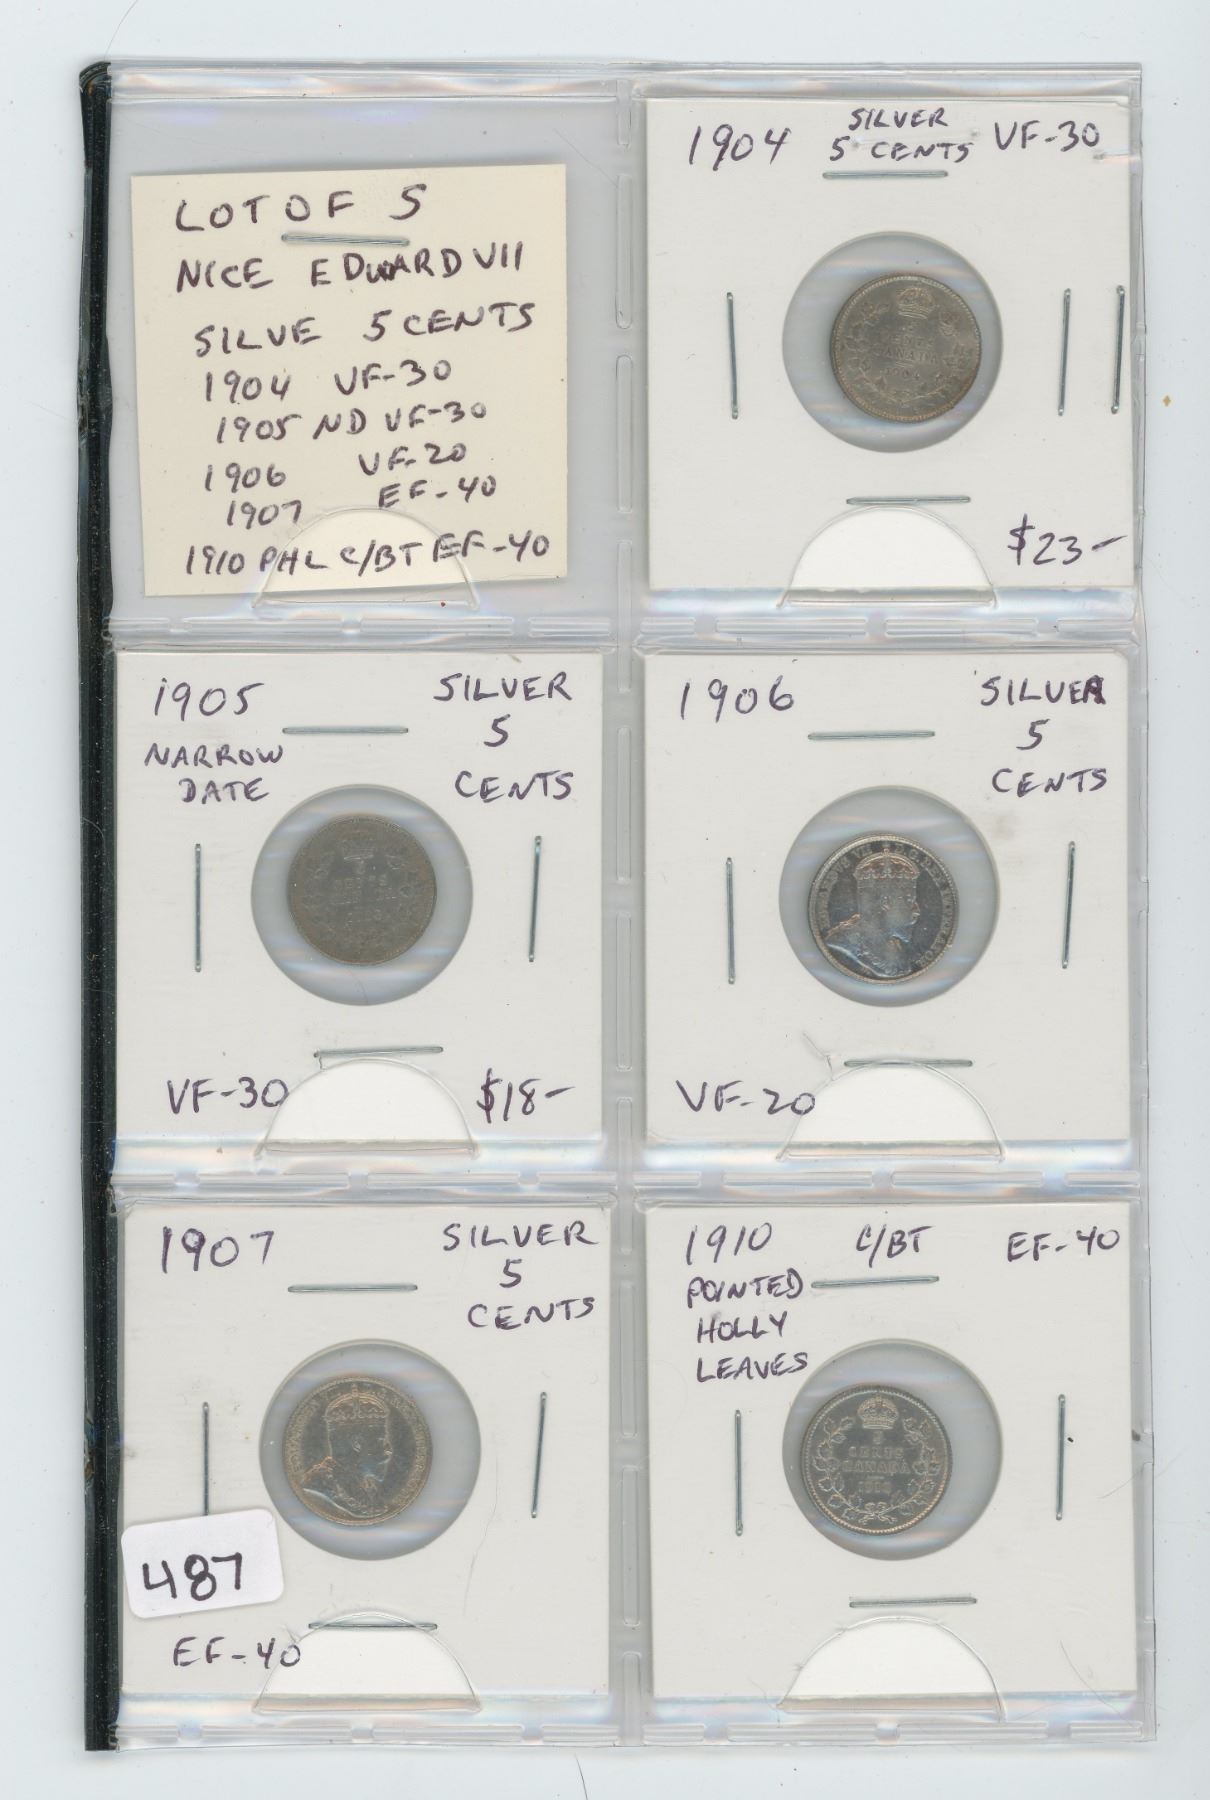 LOT OF 5
NICE EDWARD VII
SILVE 5 CENTS
1904 VF-30
1905 ND VF-30
1906 VF-20
1907 EF-40
1910 PHL C/BT EF-40
1904 SILVER 5 CENTS VF-30
CENTS
CANADA
1904
$23-
1905 SILVER
5
NARROW
DATE
CENTS
VF-30 $18-
1906 SILVER
5
CENTS
VF-20
1907 SILVER
5
CENTS
487
EF-40
1910 C/BT EF-40
POINTED
HOLLY
LEAVES
5
CENTS
CANADA
1910